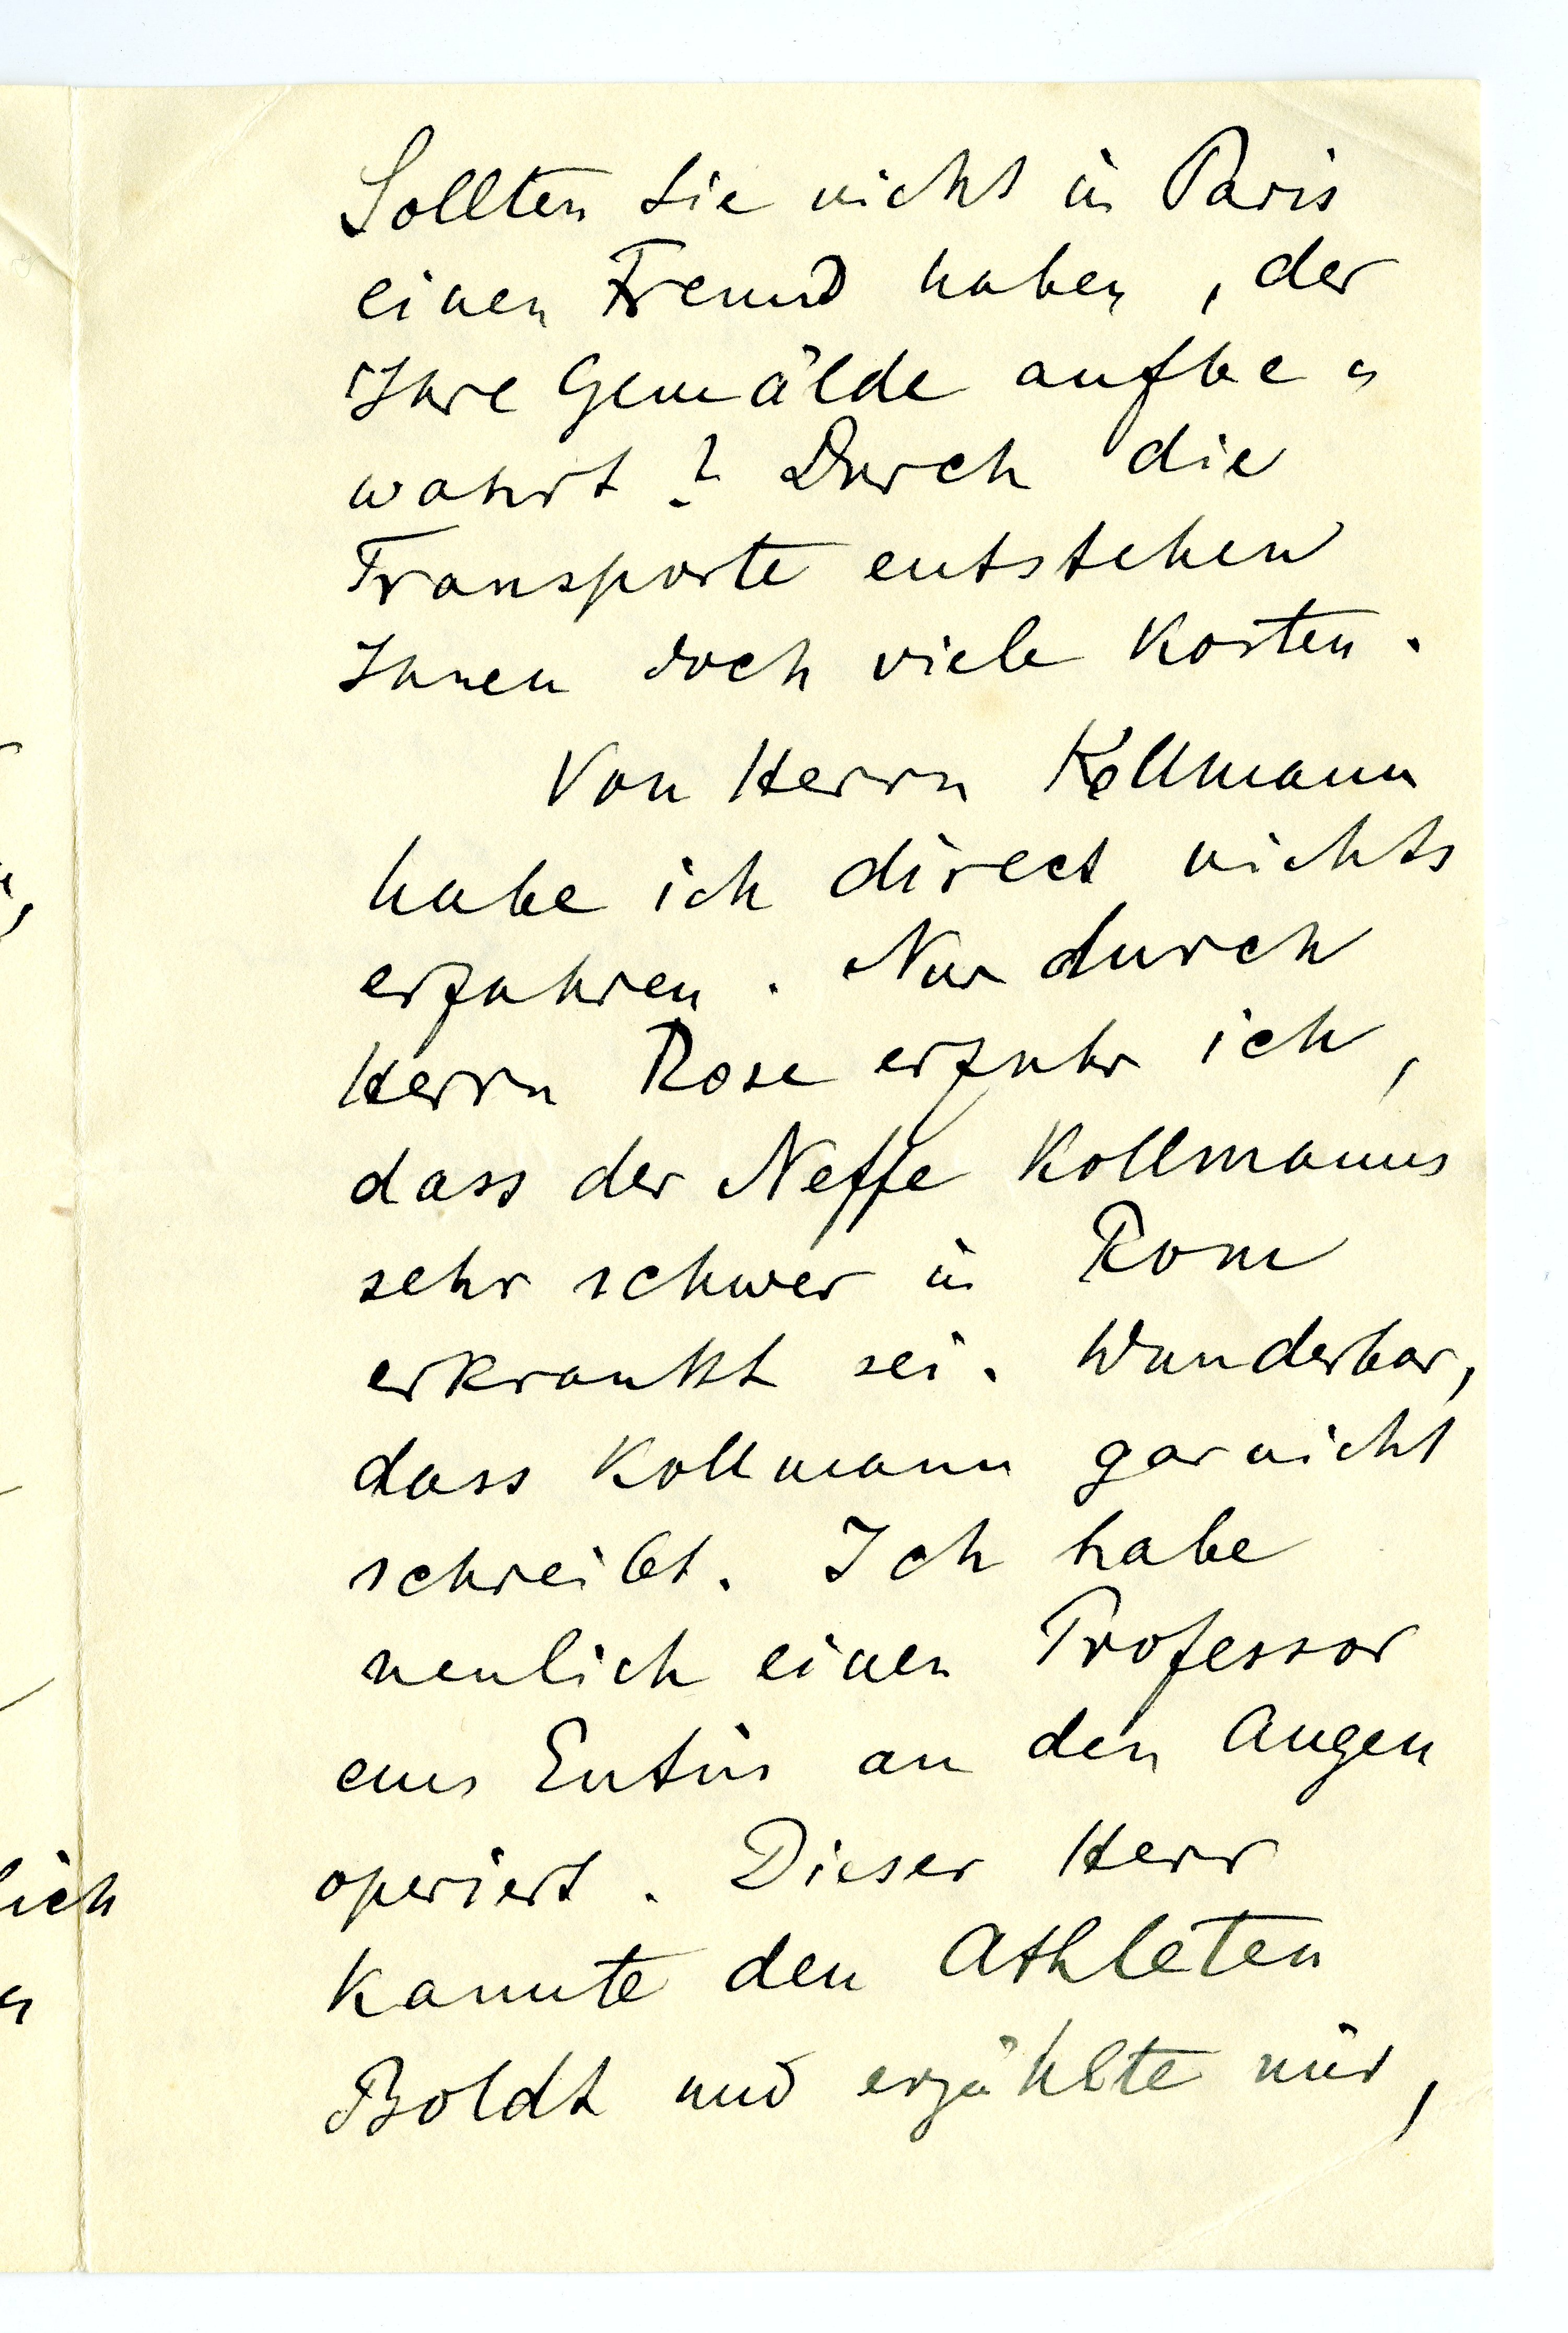 Sollten Sie nicht in Paris
einen Freund haben, der
Ihre Gemälde aufbe=
wahrt? Durch die
Transporte entstehen
Ihnen doch viele Kosten.
Von Herrn Kollmann
habe ich direct nichts
erfahren. Nur durch
Herrn Rose erfuhr ich,
dass der Neffe Kollmanns
sehr schwer in Rom
erkrankt sei. Wunderbar,
dass Kollmann gar nicht
schreibt. Ich habe
neulich einen Professor
aus Eutin an den Augen
operiert. Dieser Herr
kannte den Athleten
Boldt und erzählte mir,
lich